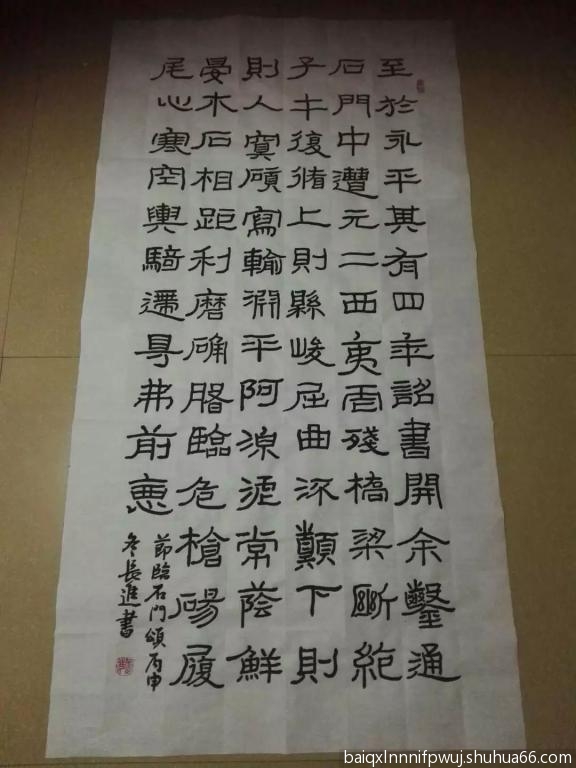 至於永平其有四年詔書開余鑿通
石門中遭元二西夷虐殘橋梁斷絶
子午復循上則縣峻屈曲流顛下則
則人冥寫輸淵平阿涼泥常蔭鮮
晏木石相距利磨确臨危槍碭履
尾心寒空輿騎遰㝵弗前惡
節臨石門頌丙申
冬長進書
baiqxlnnnifpwuj.shuhua66.com